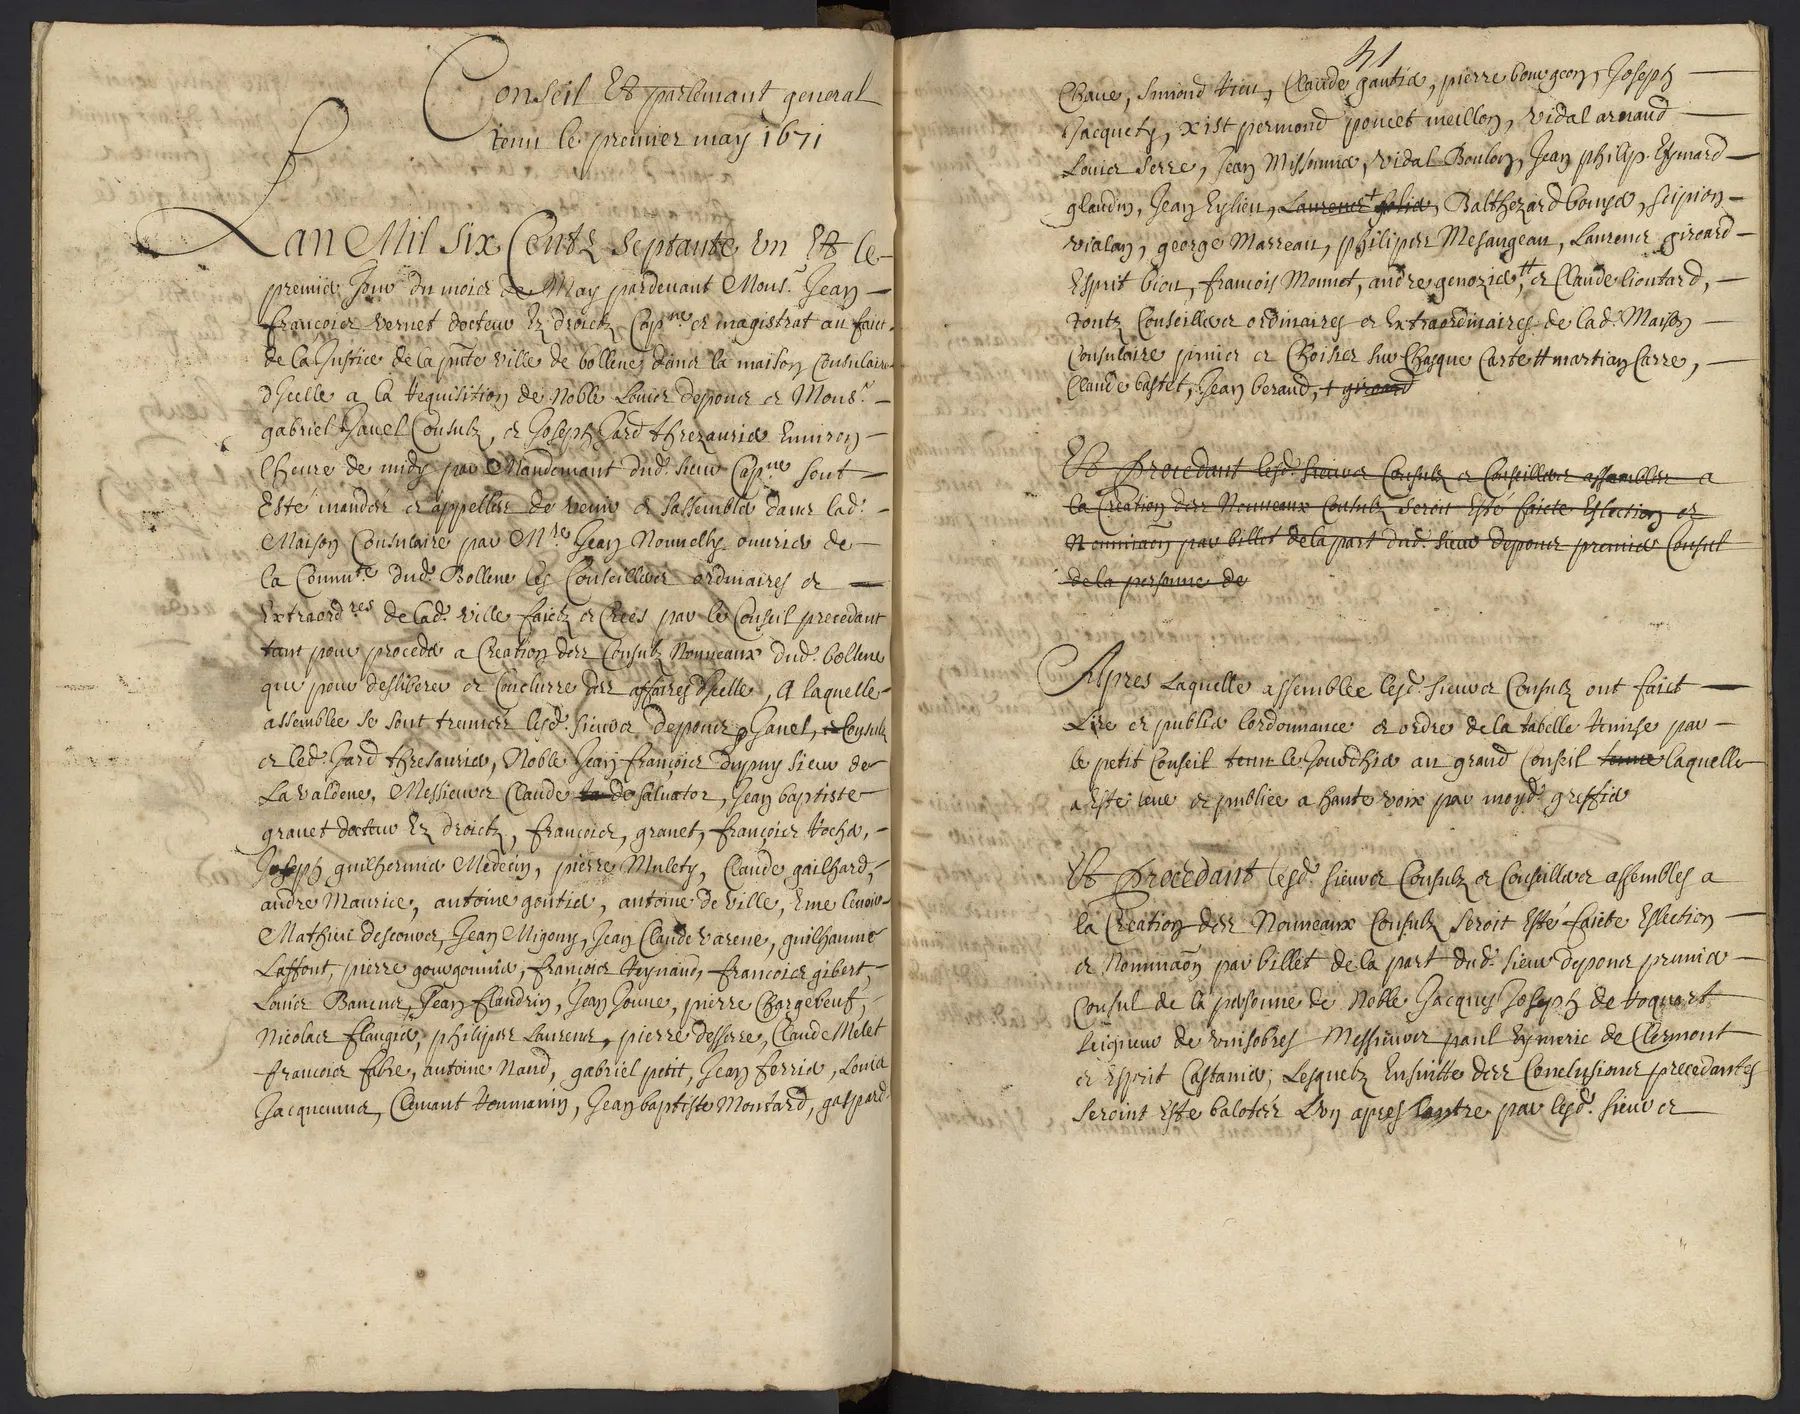 Conseil Et parlemant general
tenu le premier may 1671
Lan Mil six Centz septante un Et le
premier Jour du mois de May pardevant Mons.r Jean
françois vernet docteur Ez droictz Cap.ne et magistrat au faict
de la Justice de la p.nte ville de bollene dans la maison Consulaire
d'Icelle a la Requisition de Noble Louis deponcs et Mons.r
gabriel Janel Consulz, et Joseph Jard threzaurier Environ
lheure de midy par Mandemant dud. sieur Cap.ne sont
Esté mandes et appelles de venir et sassembler dans lad.
Maison Consulaire par M.re Jean Nouvelly ouvrier de
la Commu.te dud. Bollene les Conseillers ordinaires et
Extraord.res de lad. ville faictz et Crees par le Conseil precedant
tant pour proceder a Creation des Consulz Nouveaux dud. bollene
que pour desliberer et Conclurre des affaires d'Icelle, A laquelle
assemblee se sont treuves lesd. sieurs deponcs, Janel, et Consulz
et led. Jard thresaurier, Noble Jean françois dupuy sieur de
La valdene, Messieurs Claude de salvator, Jean baptiste
granet docteur Ez droictz, françois, granet, françois Rocher,
Joseph guilhermier Medecin, pierre Mulety, Claude gailhard,
andre Maurice, antoine gontier, antoine de ville, Eme lenoir
Mathieu descouvers, Jean Migony, Jean Claude varene, guilhaume
Laffont, pierre gourgounier, françois Reynaud, françois gibert,
Louis Bancner, Jean flandrin, Jean Joune, pierre Chargebeuf,
Nicolas flaugier, philipes Laurens, pierre desserre, Claude Melet
françois fabre, antoine Naud, gabriel petit, Jean ferrier, Louis
Jacquemus, Clemant Roumanin, Jean baptiste Moutard, gaspard
41
Chave, simond Rieu, Claude gautier, pierre bourgeon, Joseph
Jacquety, xist permond poncet meillon, vidal arnaud
Louis serre, Jean Missonnier, vidal Boulon, Jean philip Eymard
glaudin, Jean Eylieu, Laurens Jolier, Balthezard bouyer, scipion
vialan, george Marreau, philipes Mesangeau, Laurens giraard
Esprit biou, francois Monnet, andre genozier, et Claude lioutard,
toutz Conseillers ordinaires et Extraordinaires de lad. Maison
Consulaire prinses et Choises sur Chasque Carte # martian Carre,
Claude bastet, Jean beraud, + giraard
Et Procedant lesd. sieurs Consulz et Conseillers assembles a
la Creation des Nouveaux Consulz seroit Esté faicte Eslection et
Nominaon par billet de la part dud. sieur deponcs premier Consul
de la personne de
Apres Laquelle assemblee lesd. sieurs Consulz ont faict
Lire et publier lordonnance et ordre de la tabelle Remise par
le petit Conseil tenu le Jourdhier au grand Conseil tenue laquelle
a Este leue et publiee a haute voix par moyd. greffier
Et Procedant lesd. sieurs Consulz et Conseillers assembles a
la Creation des Nouveaux Consulz seroit Esté faicte Eslection
et Nominaon par billet de la part dud. sieur deponcs premier
Consul de la personne de Noble Jacques Joseph de Roquart
seigneur de vinsobres Messieurs paul Eymeric de Clermont
et Esprit Castanier, Lesquelz Ensuitte des Conclusions precedantes
seroint Este balotés Lun apres lautre par lesd. sieurs